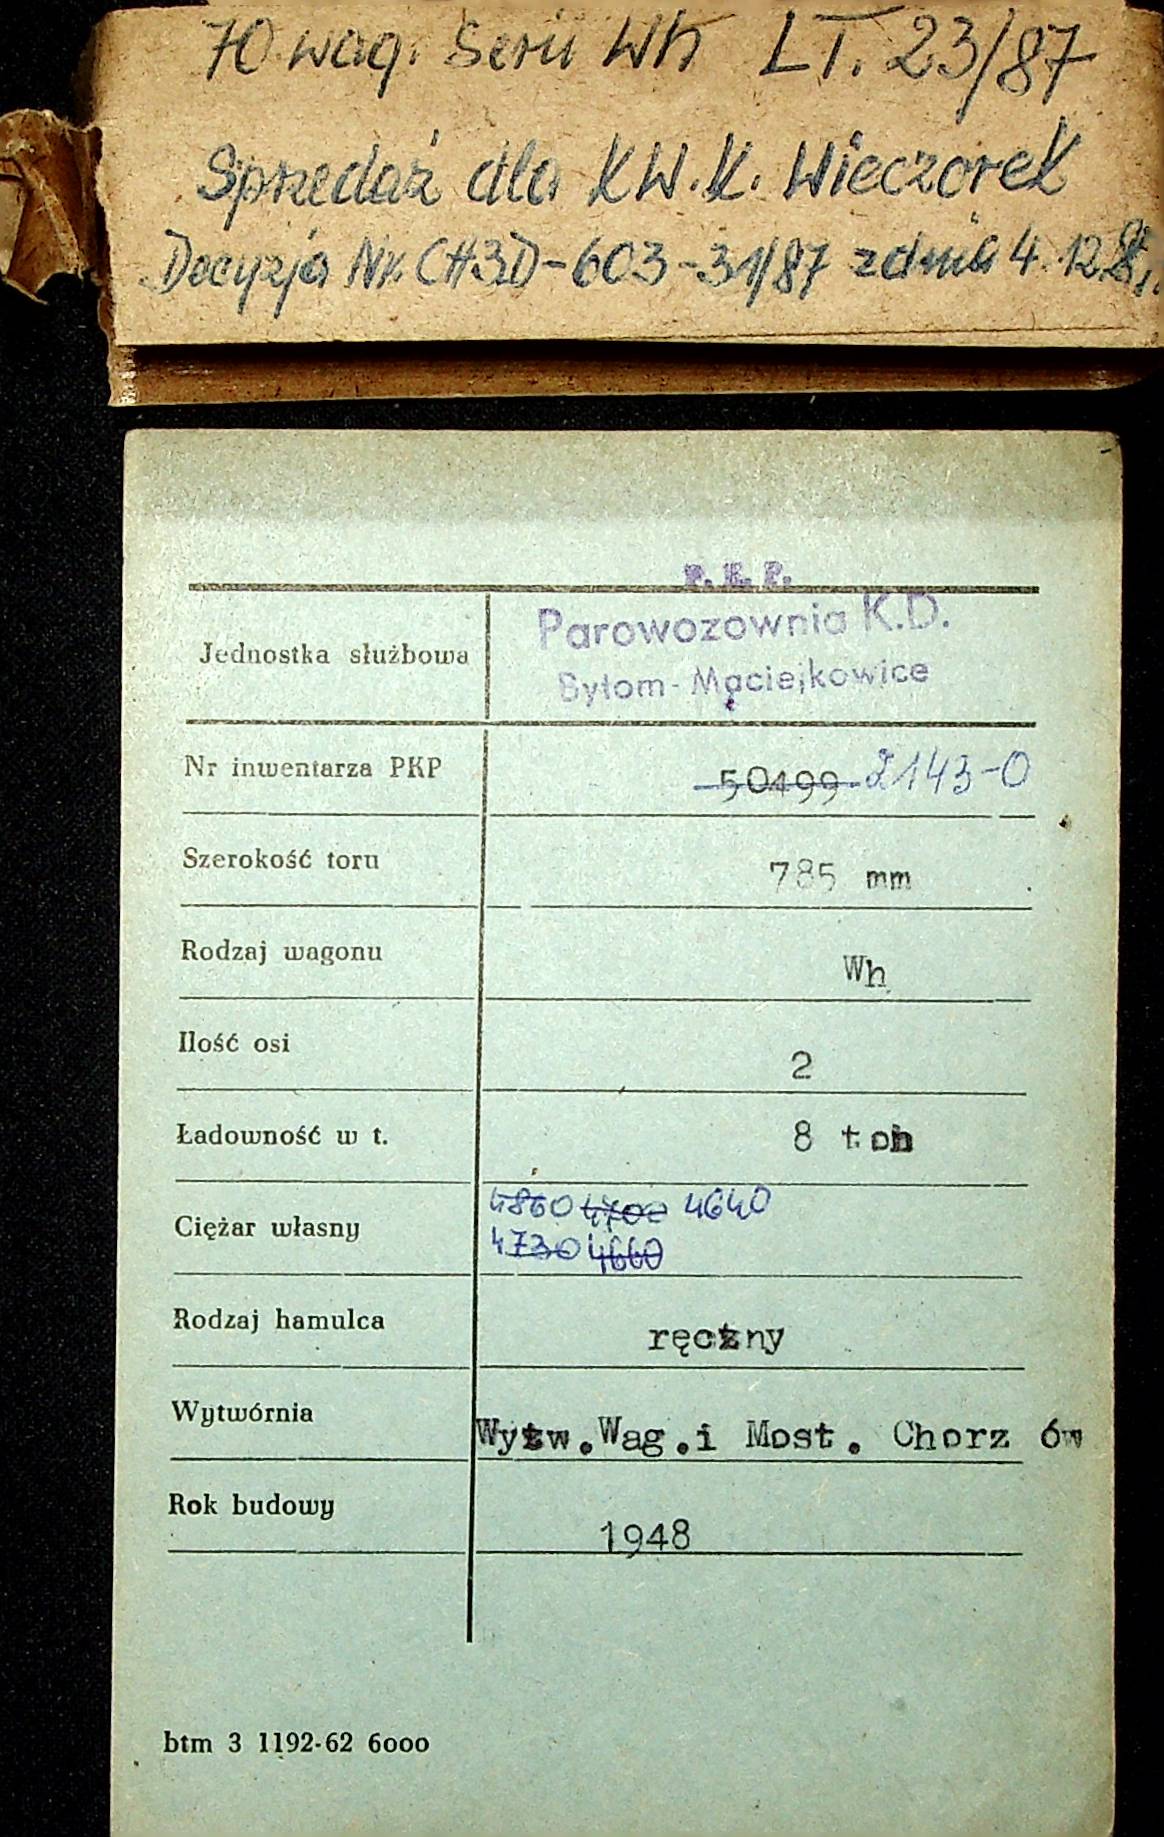 70 wag. Serii Wh LT. 23/87
Sprzedaż dla KW.K. Wieczorek
Decyzja Nr. CH3D-603-31/87 z dnia 4.12.87r.
P. K. P.
Jednostka służbowa Parowozownia K.D.
Bytom-Maciejkowice
Nr inwentarza PKP 50499 2143-0
Szerokość toru 785 mm
Rodzaj wagonu Wh
Ilość osi 2
Ładowność w t. 8 ton
Ciężar własny 4860 4700 4640
4730 4660
Rodzaj hamulca ręczny
Wytwórnia Wytw.Wag.i Most. Chorz ów
Rok budowy 1948
btm 3 1192-62 6000